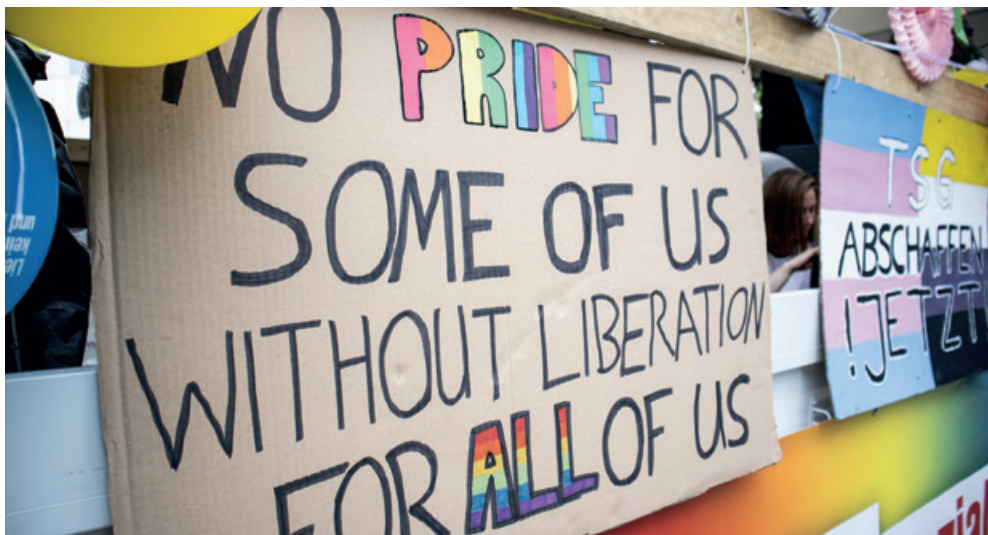 NO PRIDE FOR
SOME OF US
WITHOUT LIBERATION
FOR ALL OF US
TSG
ABSCHAFFEN
!JETZT!
und
kein